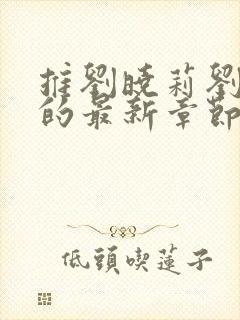 推劉曉莉劉
的最新章節
低頭喫蓮子